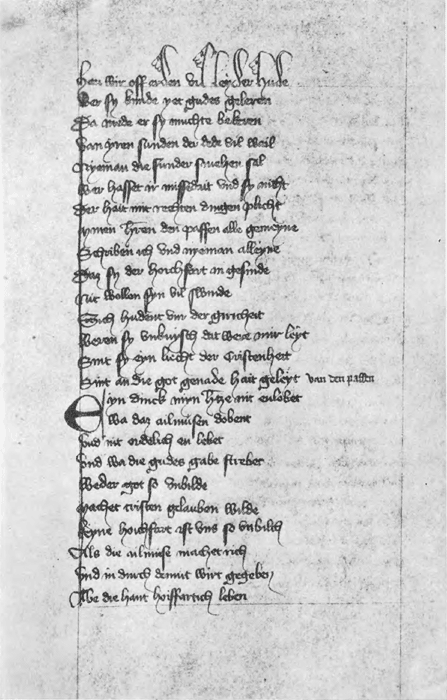 Han wir off erden vil leyder hude
Wer sy kunde yet gudes geleren
Da mide er sy muchte bekeren
Van yren sunden der dede vil wail
Nyeman die sunder smehen sal
Wer hasset ir missedait vnd sy nicht
Der hait mit rechten dingen plicht
den paffen alle gemeyne
Schriben ich vnd nyeman alleyne
Daz sy der hochfart in gesinde
Nit wollen syn vil swinde
Sich hudent vur der giricheit
Weren sy vnkuysch dat were mir leyt
Sint sy eyn liecht der Cristenheit
Sint an die got genade hait geleyt van den paffen
Eyn dinck myn hertze nit enlobet
Wa daz almusen dobent
Vnd nit endelich en lebet
Vnd wa die gudes gabe strebet
Weder got so vnbilde
Machet cristen gelauben wilde
Keyne hoichfart ist vns so vnbilch
Als die almuse machet rich
Vnd in durch demut wirt gegeben
Abe die hant hoiffartich leben